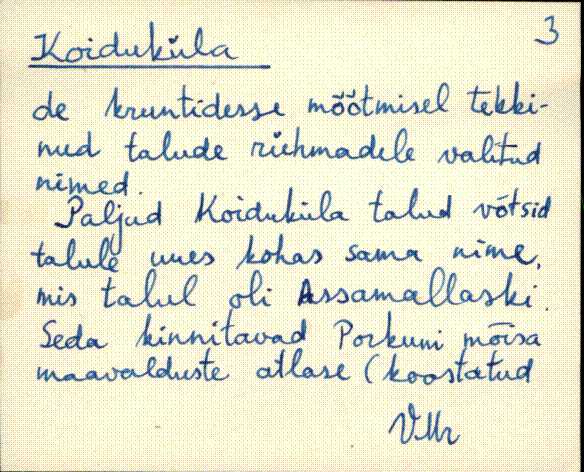 3
Koiduküla
de kruntidesse mõõtmisel tekki-
nud talude rühmadele valitud
nimed.
Paljud Koiduküla talud võtsid
talule uues kohas sama nime,
mis talul oli Assamallaski.
Seda kinnitavad Porkuni mõisa
maavalduste atlase (koostatud
VMr